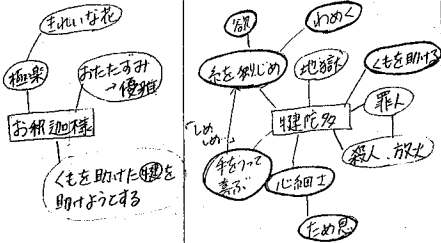 きれいな花
極楽
おたたずみ
→優雅
お釈迦様
くもを助けた犍を
助けようとする
欲
わめく
糸を独りじめ
地獄
くもを助ける
罪人
犍陀多
「しめ
しめ…」
手をうって
喜ぶ
殺人、放火
心細さ
ため息